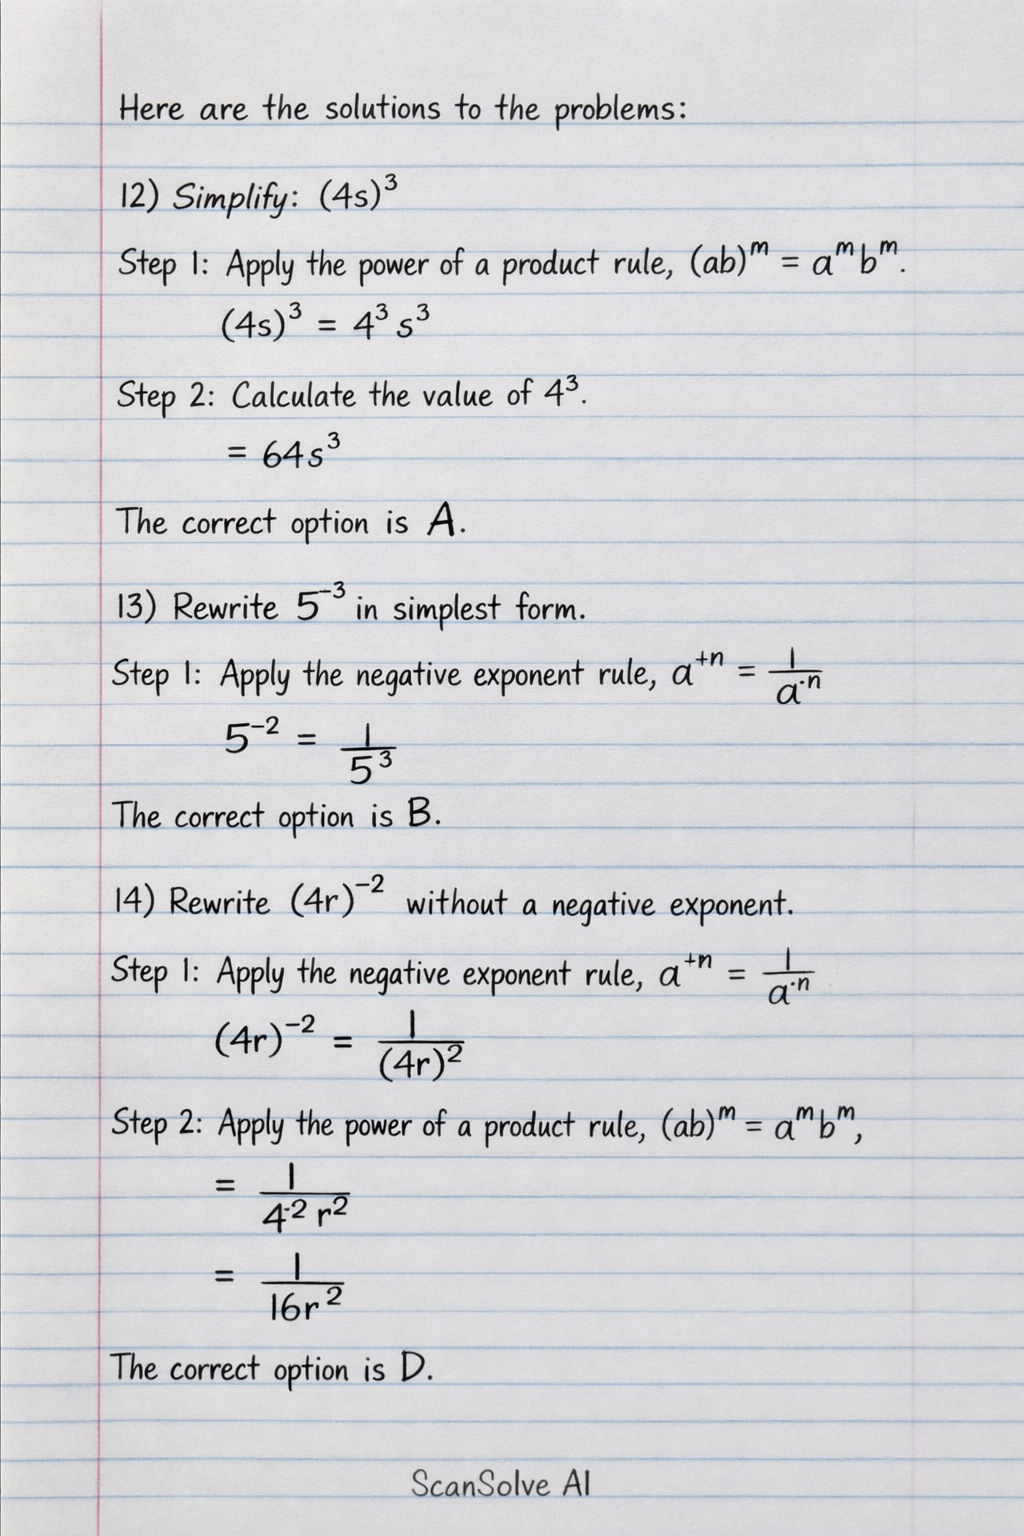 Here are the solutions to the problems:
12) Simplify: (4s)³
Step 1: Apply the power of a product rule, (ab)ᵐ = aᵐbᵐ.
(4s)³ = 4³ s³
Step 2: Calculate the value of 4³.
= 64s³
The correct option is A.
13) Rewrite 5⁻³ in simplest form.
Step 1: Apply the negative exponent rule, a⁺ⁿ = 1/a·ⁿ
5⁻² = 1/5³
The correct option is B.
14) Rewrite (4r)⁻² without a negative exponent.
Step 1: Apply the negative exponent rule, a⁺ⁿ = 1/a·ⁿ
(4r)⁻² = 1/(4r)²
Step 2: Apply the power of a product rule, (ab)ᵐ = aᵐbᵐ,
= 1/4·² r²
= 1/16r²
The correct option is D.
ScanSolve AI